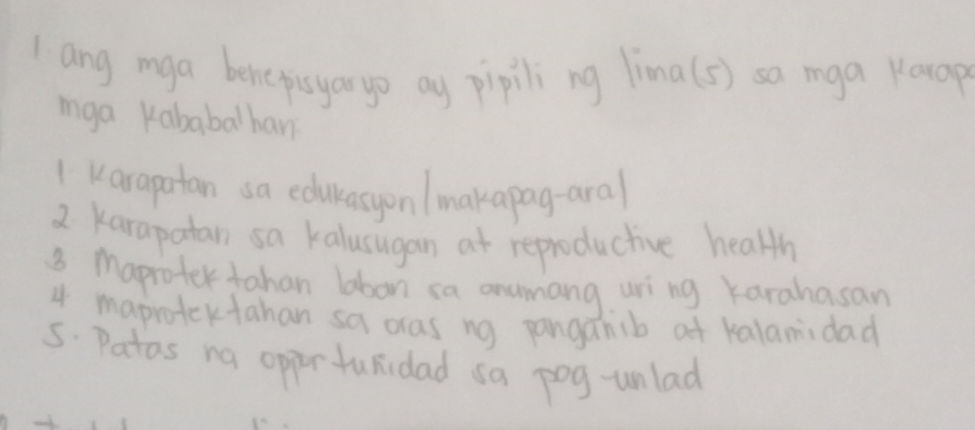 1 ang mga benepisyaryo ay pipili ng lima(5) sa mga Karapa
mga kababaihan
1 Karapatan sa edukasyon/makapag-aral
2. Karapatan sa kalusugan at reproductive health
3 Maprotektahan laban sa anumang uri ng karahasan
4 maprotektahan sa oras ng panganib at kalamidad
5. Patas na oppurtunidad sa pag-unlad